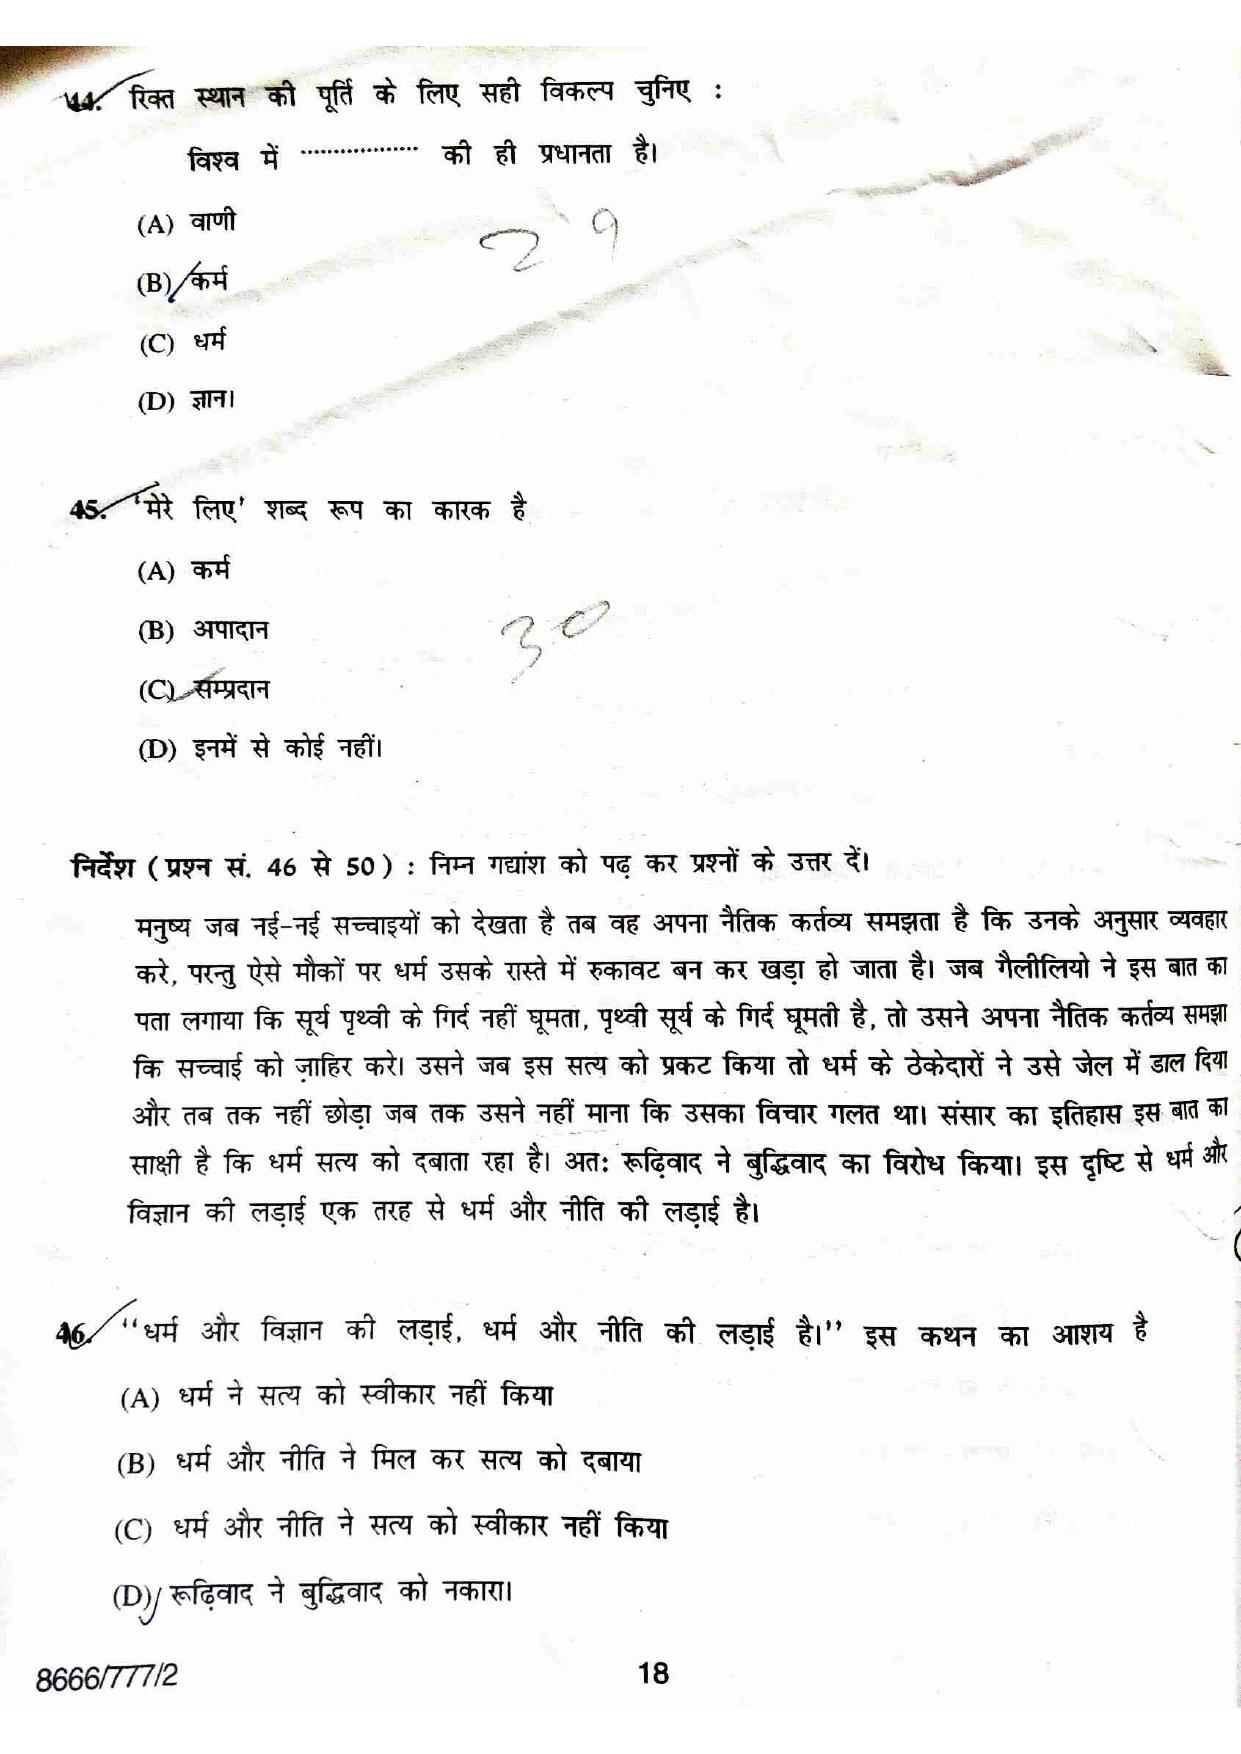 44. रिक्त स्थान की पूर्ति के लिए सही विकल्प चुनिए :
विश्व में ················· की ही प्रधानता है।
(A) वाणी
2 9
(B) कर्म
(C) धर्म
(D) ज्ञान।
45. 'मेरे लिए' शब्द रूप का कारक है
(A) कर्म
(B) अपादान
30
(C) सम्प्रदान
(D) इनमें से कोई नहीं।
निर्देश ( प्रश्न सं. 46 से 50 ) : निम्न गद्यांश को पढ़ कर प्रश्नों के उत्तर दें।
मनुष्य जब नई-नई सच्चाइयों को देखता है तब वह अपना नैतिक कर्तव्य समझता है कि उनके अनुसार व्यवहार
करे, परन्तु ऐसे मौकों पर धर्म उसके रास्ते में रुकावट बन कर खड़ा हो जाता है। जब गैलीलियो ने इस बात का
पता लगाया कि सूर्य पृथ्वी के गिर्द नहीं घूमता, पृथ्वी सूर्य के गिर्द घूमती है, तो उसने अपना नैतिक कर्तव्य समझा
कि सच्चाई को ज़ाहिर करे। उसने जब इस सत्य को प्रकट किया तो धर्म के ठेकेदारों ने उसे जेल में डाल दिया
और तब तक नहीं छोड़ा जब तक उसने नहीं माना कि उसका विचार गलत था। संसार का इतिहास इस बात का
साक्षी है कि धर्म सत्य को दबाता रहा है। अतः रूढ़िवाद ने बुद्धिवाद का विरोध किया। इस दृष्टि से धर्म और
विज्ञान की लड़ाई एक तरह से धर्म और नीति की लड़ाई है।
46. "धर्म और विज्ञान की लड़ाई, धर्म और नीति की लड़ाई है।" इस कथन का आशय है
(A) धर्म ने सत्य को स्वीकार नहीं किया
(B) धर्म और नीति ने मिल कर सत्य को दबाया
(C) धर्म और नीति ने सत्य को स्वीकार नहीं किया
(D) रूढ़िवाद ने बुद्धिवाद को नकारा।
8666/777/2
18